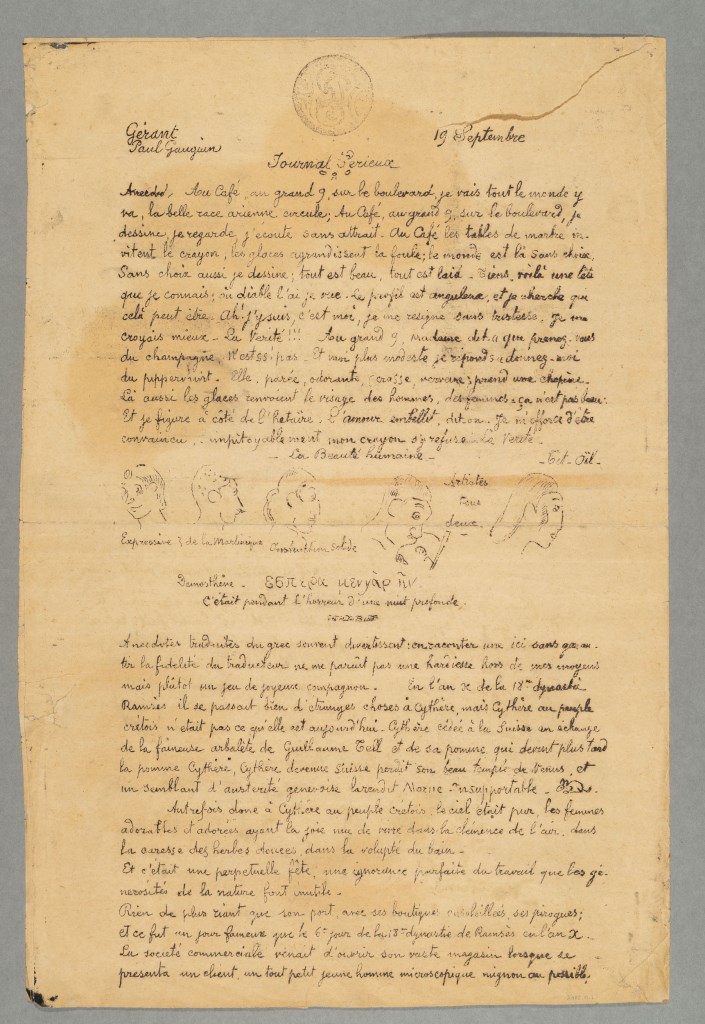 Gérant
Paul Gauguin
19 Septembre
Journal Sérieux
Anecdo. Au Café, au grand 9, sur le boulevard, je vais tout le monde y
va, la belle race arienne circule; Au Café, au grand 9, sur le boulevard, je
dessine, je regarde j'écoute sans attrait. Au Café les tables de marbre in-
vitent le crayon, les glaces agrandissent la foule; le monde est là sans choix,
Sans choix aussi je dessine; tout est beau, tout est laid. Tiens, voilà une tête
que je connais; où diable l'ai je vue. Le profil est anguleux, et je cherche qui
celà peut être. Ah! j'y suis, c'est moi, je me resigne sans tristesse. Je me
croyais mieux – La Verité!!! Au grand 9, madame dit. a que prenez-vous
du champagne N'est ce pas. Et moi plus modeste je réponds: donnez-moi
du pippermint. Elle, parée, odorante, grasse, verveuse; prend une chopine.
Là aussi les glaces renvoient le visage des hommes, des femmes: ça n'est pas beau.
Et je figure à côté de l'hetaïre. L'amour embellit, dit-on. Je m'efforce d'être
convaincu. – impitoyablement mon crayon s'y refuse – La Verité –
– La Beauté humaine –
– Tit-Oïl –
Expressive
de la Martinique
Construction Solide
Artistes
tous
deux.
Demosthène – εσπερα μεν γαρ ῆν
C'était pendant l'horreur d'une nuit profonde.
Anecdotes traduites du grec souvent divertissent: en raconter une ici sans garan-
tir la fidelité du traducteur ne me parait pas une hardiesse hors de mes moyens
mais plutot un jeu de joyeux compagnon. En l'an X de la 18me dynastie
Ramsès il se passait bien d'étranges choses à Cythère, mais Cythère au peuple
crétois n'était pas ce qu'elle est aujourd'hui – Cythère cédée à la Suisse en échange
de la fameuse arbalète de Guillaume Tell et de sa pomme qui devint plus tard
la pomme Cythère, Cythère devenue Suisse perdit son beau temple de Venus, et
un semblant d'austerité genevoise la rendit insupportable –
Autrefois donc à Cythère au peuple crétois, le ciel était pur, les femmes
adorables et adorées, ayant la joie nue de vivre dans la clémence de l'air, dans
la caresse des herbes douces, dans la volupté du bain –
Et c'était une perpetuelle fête, une ignorance parfaite du travail que les gé-
nerosités de la nature font inutile –
Rien de plus riant que son port, avec ses boutiques ensoleillées, ses pirogues;
et ce fut un jour fameux que le 6e jour de la 18e dynastie de Ramsès en l'an X.
La societé commerciale venait d'ouvrir son vaste magasin lorsque se
presenta un client, un tout petit jeune homme microscopique mignon au possible,